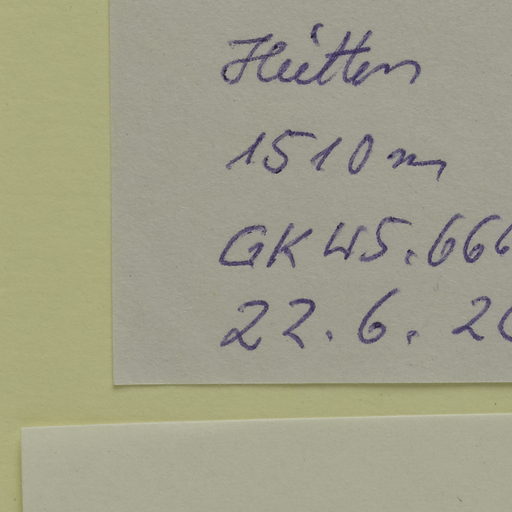 Hütten
1510 m
GK 45.666
22.6.20